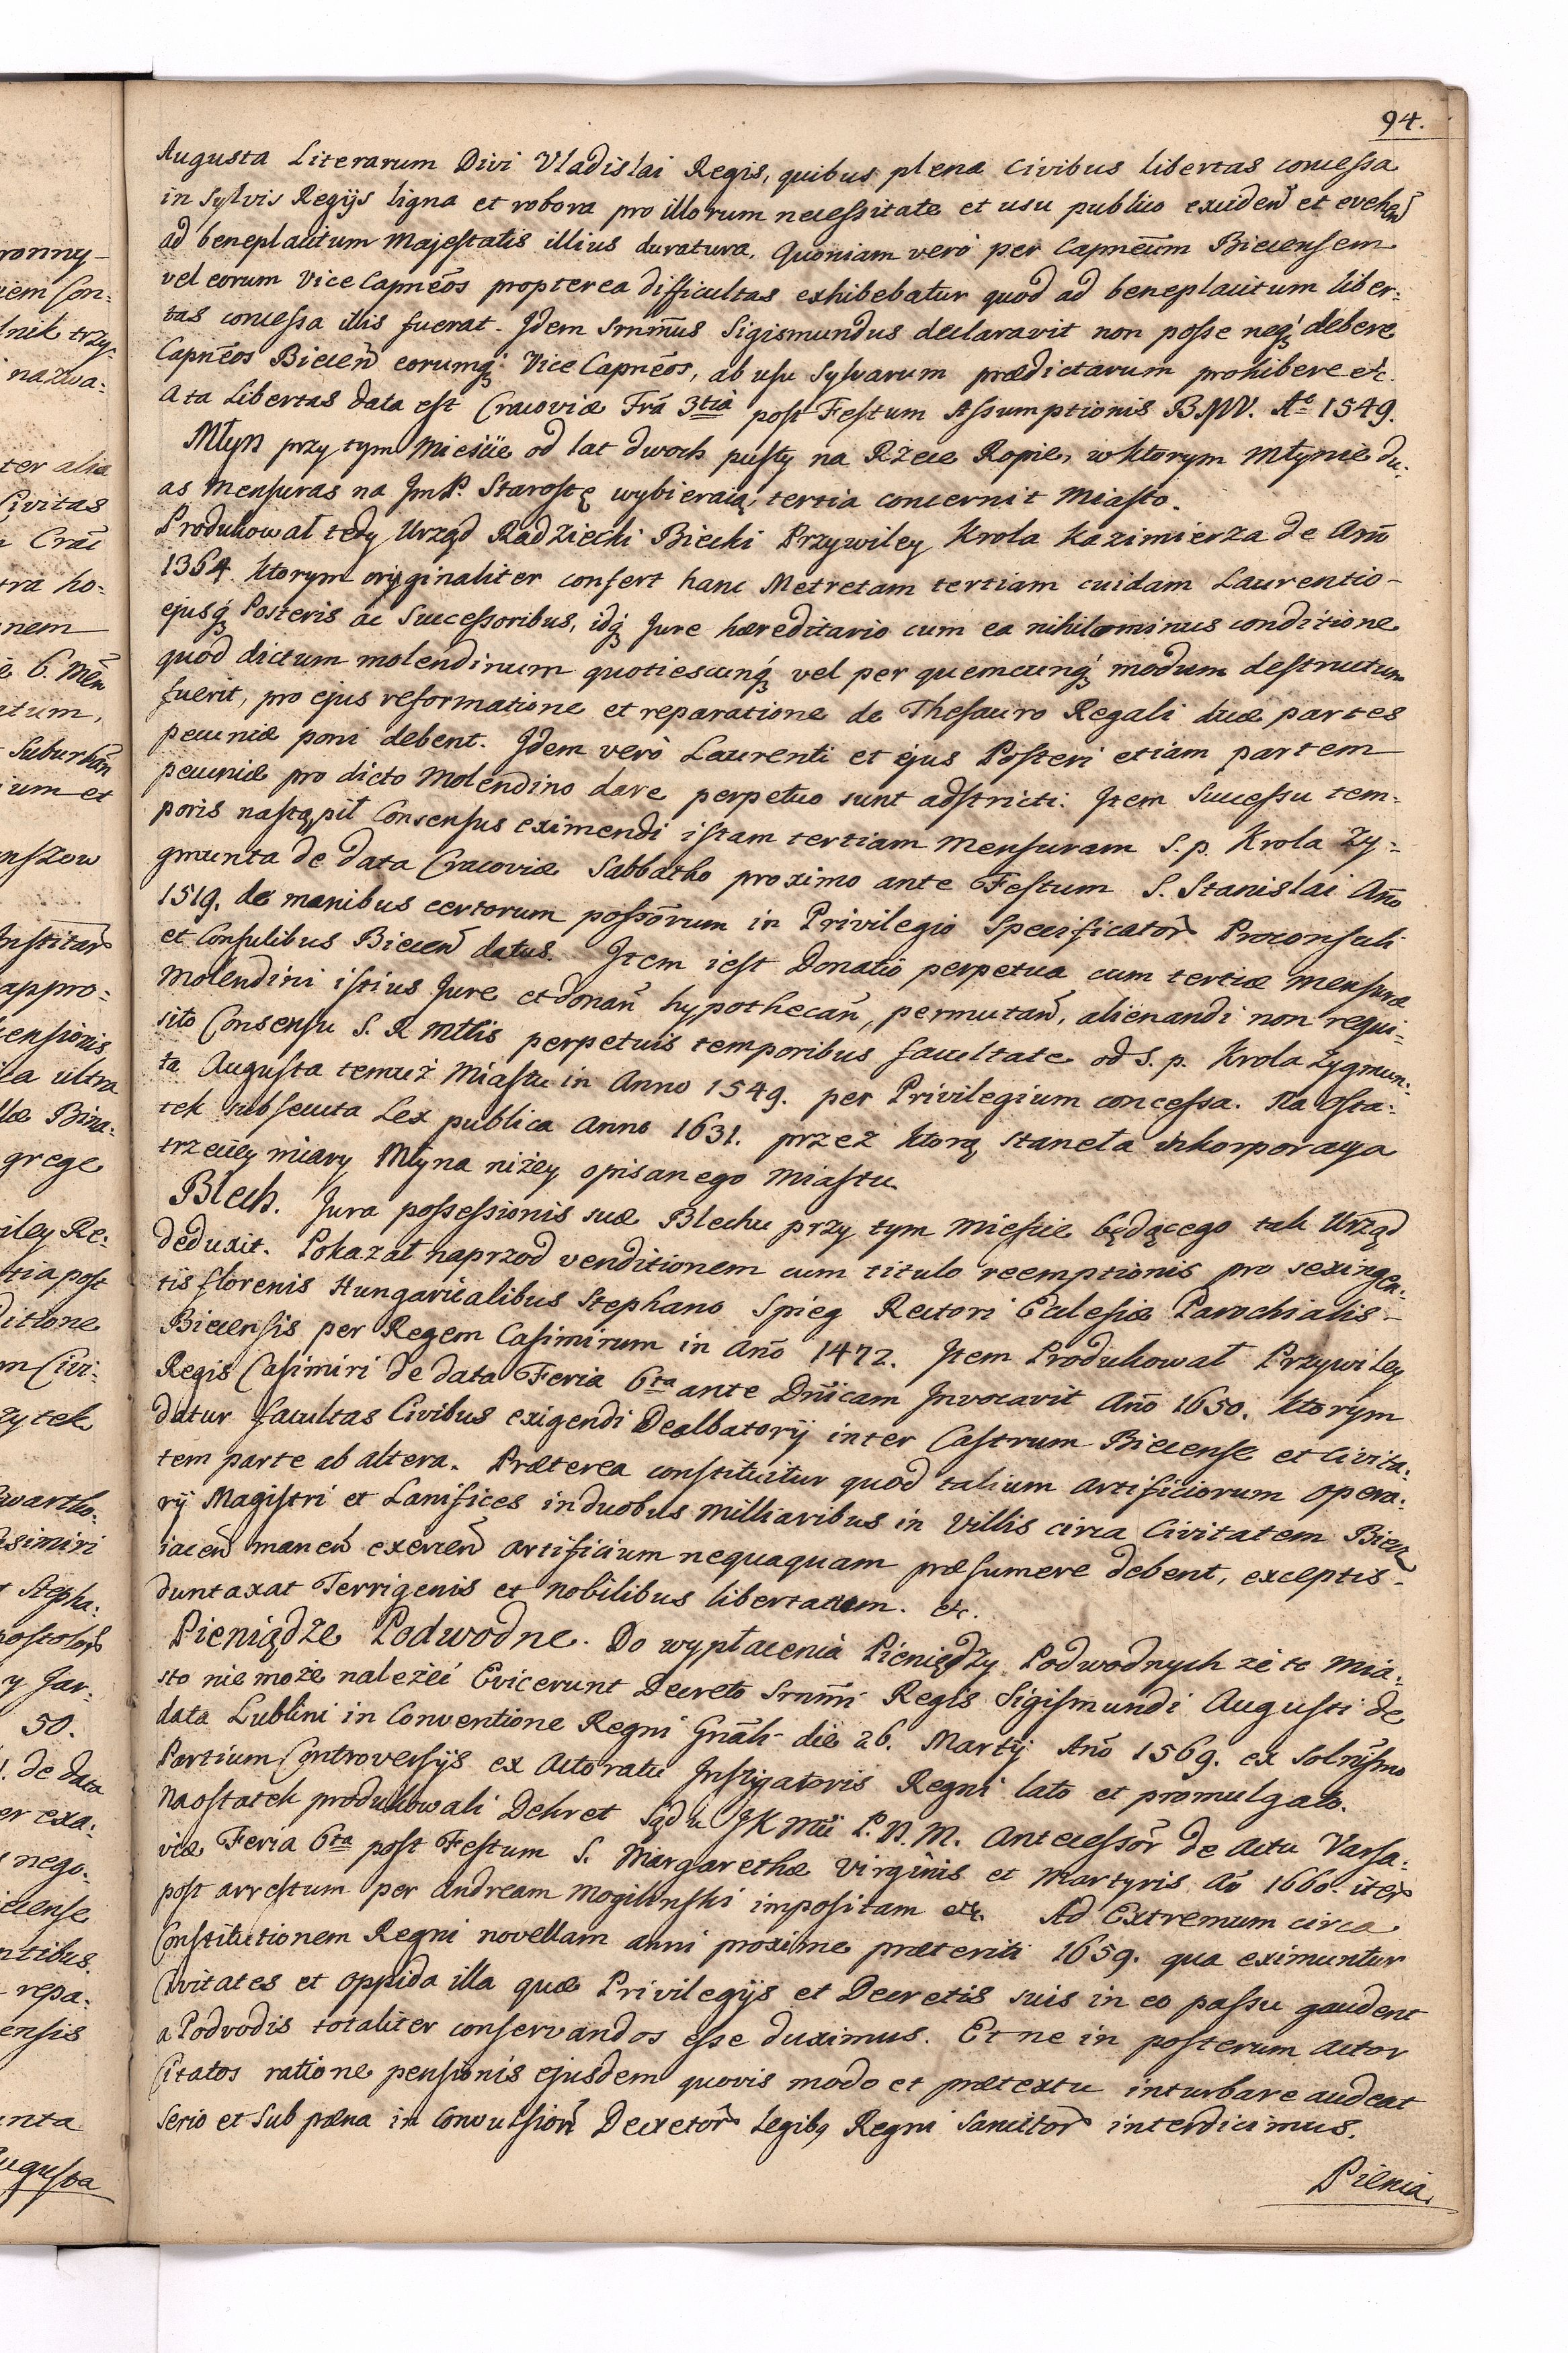 94.
Augusta Literarum Divi Vladislai Regis, quibus plena Civibus libertas concessa
in Sylvis Regijs ligna et robora pro illorum necessitate et usu publico exciden̄ et evehen̄
ad beneplacitum Majestatis illius duratura. Quoniam verò per Capnēum Biecensem
vel eorum Vice Capnēos propterea difficultas exhibebatur quod ad beneplacitum liber:
tas concessa illis fuerat. Idem Srnm̄us Sigismundus declaravit non posse neqꝫ debere
Capnēos Biecen̄ eorumqꝫ Vice Capnēos, ab usu Sylvarum prædictarum prohibere etc.
A ta Libertas data est Cracoviæ Frā 3tiâ post Festum Assumptionis BMV. Aō 1549.
Młyn przy tym Mieście od lat dwoch pusty na Rzece Ropie, w ktorym Młynie du:
as Mensuras na JmP. Starostę wybieraią, tertia concernit Miasto.
Produkował tedy Urząd Radziecki Biecki Przywiley Krola Kazimierza de Anō
1364. ktorym oryginaliter confert hanc Metretam tertiam cuidam Laurentio-
ejusqꝫ Posteris ac Successoribus, idqꝫ Jure hæreditario cum ea nihilominus conditione
quod dictum molendinum quotiescunqꝫ vel per quemcunqꝫ modum destructum
fuerit, pro ejus reformatione et reparatione de Thesauro Regali duæ partes
pecuniæ poni debent. Idem verò Laurenti et ejus Posteri etiam partem
pecuniæ pro dicto Molendino dare perpetuo sunt adstricti. Item Successu tem:
poris nastąpił Consensus eximendi istam tertiam Mensuram S. p. Krola Zy:
gmunta de data Cracoviæ Sabbatho proximo ante Festum S. Stanislai Anō
1519. de manibus certorum possōrum in Privilegio Specificator̄ Proconsuli
et Consulibus Biecen̄ datus. Item iest Donatio perpetua cum tertiæ mensuræ
Molendini istius Jure et donan̄ hypothecan̄, permutan̄, alienandi non requi:
sito Consensu S. R Mtis perpetuis temporibus facultate od S. p. Krola Zygmun:
ta Augusta temuż Miastu in Anno 1549. per Privilegium concessa. Na osta:
tek subsecuta Lex publica Anno 1631. przez ktorą staneła inkorporacya
trzeciey miary Młyna niżey opisanego Miastu.
Blech. Jura possessionis suæ Blechu przy tym Mieście będącego tak Urząd
deduxit. Pokazał naprzod venditionem cum titulo reemptionis pro sexingen:
tis florenis Hungaricalibus Stephano Spieg Rectori Ecclesiæ Parochialis-
Biecensis per Regem Casimirum in Anō 1472. Item Produkował Przywiley
Regis Casimiri de data Feria 6ta ante Dnīcam Invocavit Anō 1650. ktorym
datur facultas Civibus exigendi Dealbatorij inter Castrum Biecense et Civita:
tem parte ab altera. Præterea constituitur quod talium artificiorum opera:
rij Magistri et Lanifices in duobus Milliaribus in Villis circa Civitatem Biecz
iacen̄ manen̄ exercen̄ artificium nequaquam præsumere debent, exceptis-
duntaxat Terrigenis et Nobilibus etc.
Pieniądze Podwodne. Do wypłacenia Pieniędzy Podwodnych że to Mia:
sto nie może należeć Evicerunt Decreto Srnm̄i Regis Sigismundi Augusti de
data Lublini in Conventione Regni Gnāli die 26. Martij Anō 1569. ex
Partium Controversijs ex Actoratu Instigatoris Regni lato et promulgato.
Na ostatek produkowali Dekret Sądu JK Mci P. N. M. Antecessōr de Actu Varsa:
viæ Feria 6ta post Festum S. Margarethæ Virginis et Martyris Aō 1660.
post arrestum per Andream Mogilinski impositam etc. Ad Extremum circa
Constitutionem Regni novellam anni proxime præteriti 1659. qua eximuntur
Civitates et Oppida illa quæ Privilegijs et Decretis suis in eo passu gaudent
a Podvodis totaliter conservandos esse duximus. Et ne in posterum Actor
Citatos ratione pensionis ejusdem quovis modo et prætextu inturbare audeat
Serio et sub pæna in Convulsion̄ Decretor̄ Legibꝫ Regni Sancitor̄ interdicimus.
Pilznia.